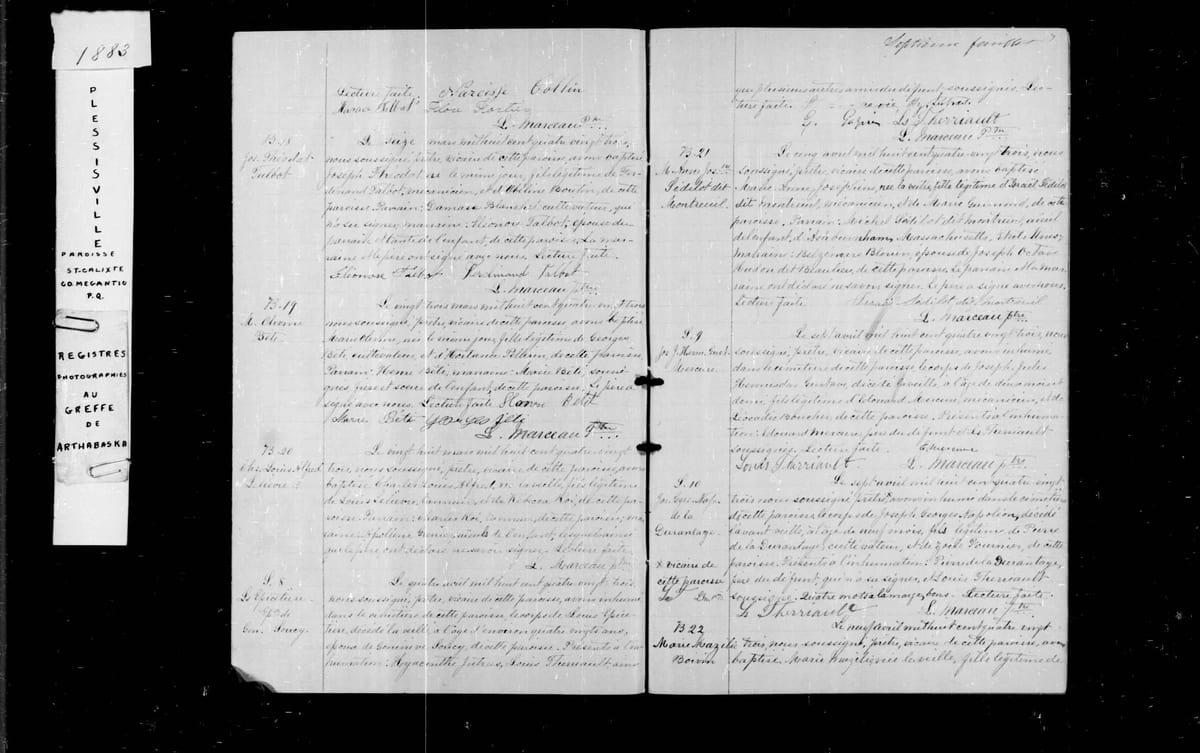 1883
PLESSISVILLE
PAROISSE
ST. CALIXTE
CO. MEGANTIC
P.Q.
REGISTRES
PHOTOGRAPHIES
AU
GREFFE
DE
ARTHABASKA
Lecture faite. Narcisse Cottin
L. Marceau Ptre
B. 18
Jos. Théodat
Talbot
Le seize mars mil huit cent quatre vingt trois,
nous soussigné, prêtre, vicaire de cette paroisse, avons baptisé
Joseph Théodat, né le même jour, fils légitime de Fer-
dinand Talbot, mécanicien, et d'Obéline Boutin, de cette
paroisse. Parrain: Damase Blanchet, cultivateur, qui
n'a su signer, marraine: Eléonore Talbot, épouse du
parrain et tante de l'enfant, de cette paroisse. La mar-
raine et le père ont signé avec nous. Lecture faite.
Eléonore Talbot Ferdinand Talbot
L. Marceau ptre
B. 19
M.
Bété
Le vingt trois mars mil huit cent quatre vingt trois
nous soussigné, prêtre, vicaire de cette paroisse, avons baptisé
Marie née le même jour, fille légitime de Georges
Bété, cultivateur, et d'Hortense de cette paroisse.
Parrain: Henri Bété, marraine: Marie Bété, soussi-
gnés, frère et soeur de l'enfant, de cette paroisse. Le père a
signé avec nous. Lecture faite. Henri Bété
Marie Bété Georges Bété
L. Marceau Ptre
B. 20
Chs. Louis Alfred
Le vingt huit mars mil huit cent quatre vingt
trois, nous soussigné, prêtre, vicaire de cette paroisse, avons
baptisé Charles Louis Alfred, né la veille, fils légitime
de Louis tanneur, et de Rébecca Roi, de cette pa-
roisse. Parrain: Charles Roi, tanneur, de cette paroisse, mar-
raine: Apolline Grenier, aïeuls de l'enfant, lesquels ainsi
que le père ont déclaré ne savoir signer. Lecture faite.
L. Marceau ptre
S. 8
Ls
Épx de
Gen. Soucy
Le quatre avril mil huit cent quatre vingt trois,
nous soussigné, prêtre, vicaire de cette paroisse, avons inhumé
dans le cimetière de cette paroisse, le corps de Louis
décédé la veille, à l'âge d'environ quatre vingts ans,
époux de Geneviève Soucy, de cette paroisse. Présents à l'in-
humation: Hyacinthe Louis Therriault ainsi
Septième feuillet
que plusieurs autres amis du défunt soussignés. Lec-
ture faite.
Ls Therriault
L. Marceau Ptre
B. 21
M. Anne Jos.ine
Sédilot dit
Montreuil
Le cinq avril mil huit cent quatre vingt trois, nous
soussigné, prêtre, vicaire de cette paroisse, avons baptisé
Marie Anne Joséphine, née la veille, fille légitime d'Israël Sédilot
dit Montreuil, mécanicien, et de Marie de cette
paroisse. Parrain: Michel Sédilot dit Montreuil, aïeul
de l'enfant, Massachusetts, Etats-Unis,
marraine: Belzémire Blouin, épouse de Joseph Octave
Hudon dit Beaulieu, de cette paroisse. Le parrain et la mar-
raine ont déclaré ne savoir signer. Le père a signé avec nous.
Lecture faite. Israël Sédilot dit Montreuil
L. Marceau ptre
S. 9
Jos. J. Herm. Gust.
Mercier
Le sept avril mil huit cent quatre vingt trois, nous
soussigné, prêtre, vicaire de cette paroisse, avons inhumé
dans le cimetière de cette paroisse, le corps de Joseph Jules
Gustave, décédé l'avant veille, à l'âge de un mois et
demi, fils légitime d'Edouard Mercier, mécanicien, et de
Léocadie Boucher, de cette paroisse. Présents à l'inhuma-
tion: Edouard Mercier, père du défunt et Ls Therriault
soussignés. Lecture faite. E. Mercier
Louis Therriault L. Marceau ptre
S. 10
Jos. Geo. Nap.
de la
Durantaye
x vicaire de
cette paroisse
Le sept avril mil huit cent quatre vingt
trois nous soussigné, prêtre x avons inhumé dans le cimetière
de cette paroisse, le corps de Joseph Georges Napoléon, décédé
l'avant veille, à l'âge de neuf mois, fils légitime de Pierre
de la Durantaye, cultivateur, et de Zoé Fournier, de cette
paroisse. Présents à l'inhumation: Pierre de la Durantaye,
père du défunt, qui n'a su signer, et Louis Therriault
soussigné. Quatre mots à la marge, bons. Lecture faite.
Ls Therriault L. Marceau Ptre
B. 22
Marie Mazélie
Boivin
Le neuf avril mil huit cent quatre vingt-
trois, nous soussigné, prêtre, vicaire de cette paroisse, avons
baptisé Marie Mazélie, née la veille, fille légitime de